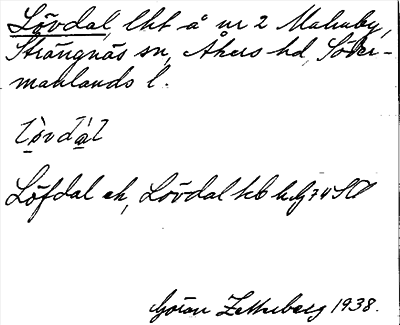 Lövdal, lht å nr 2 Malmby,
Strängnäs sn, Åkers hd, Söder-
manlands l.
Löfdal ek, Lövdal kb
Göran Zetterberg 1938.